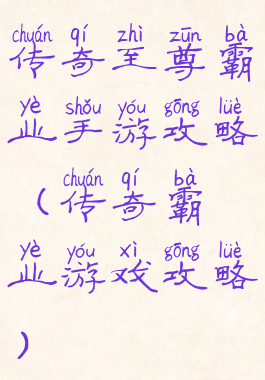 chuán qí zhì zūn bà
传奇至尊霸
yè shǒu yóu gōng lüè
业手游攻略
chuán qí bà
（传奇霸
yè yóu xì gōng lüè
业游戏攻略
）